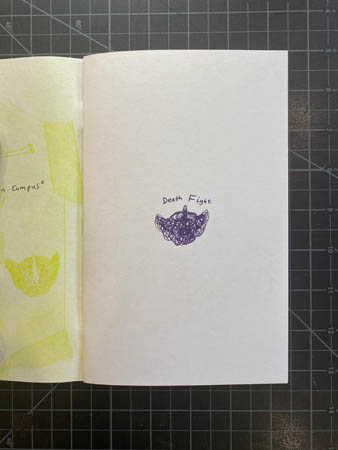 n Campus"
Death Fight